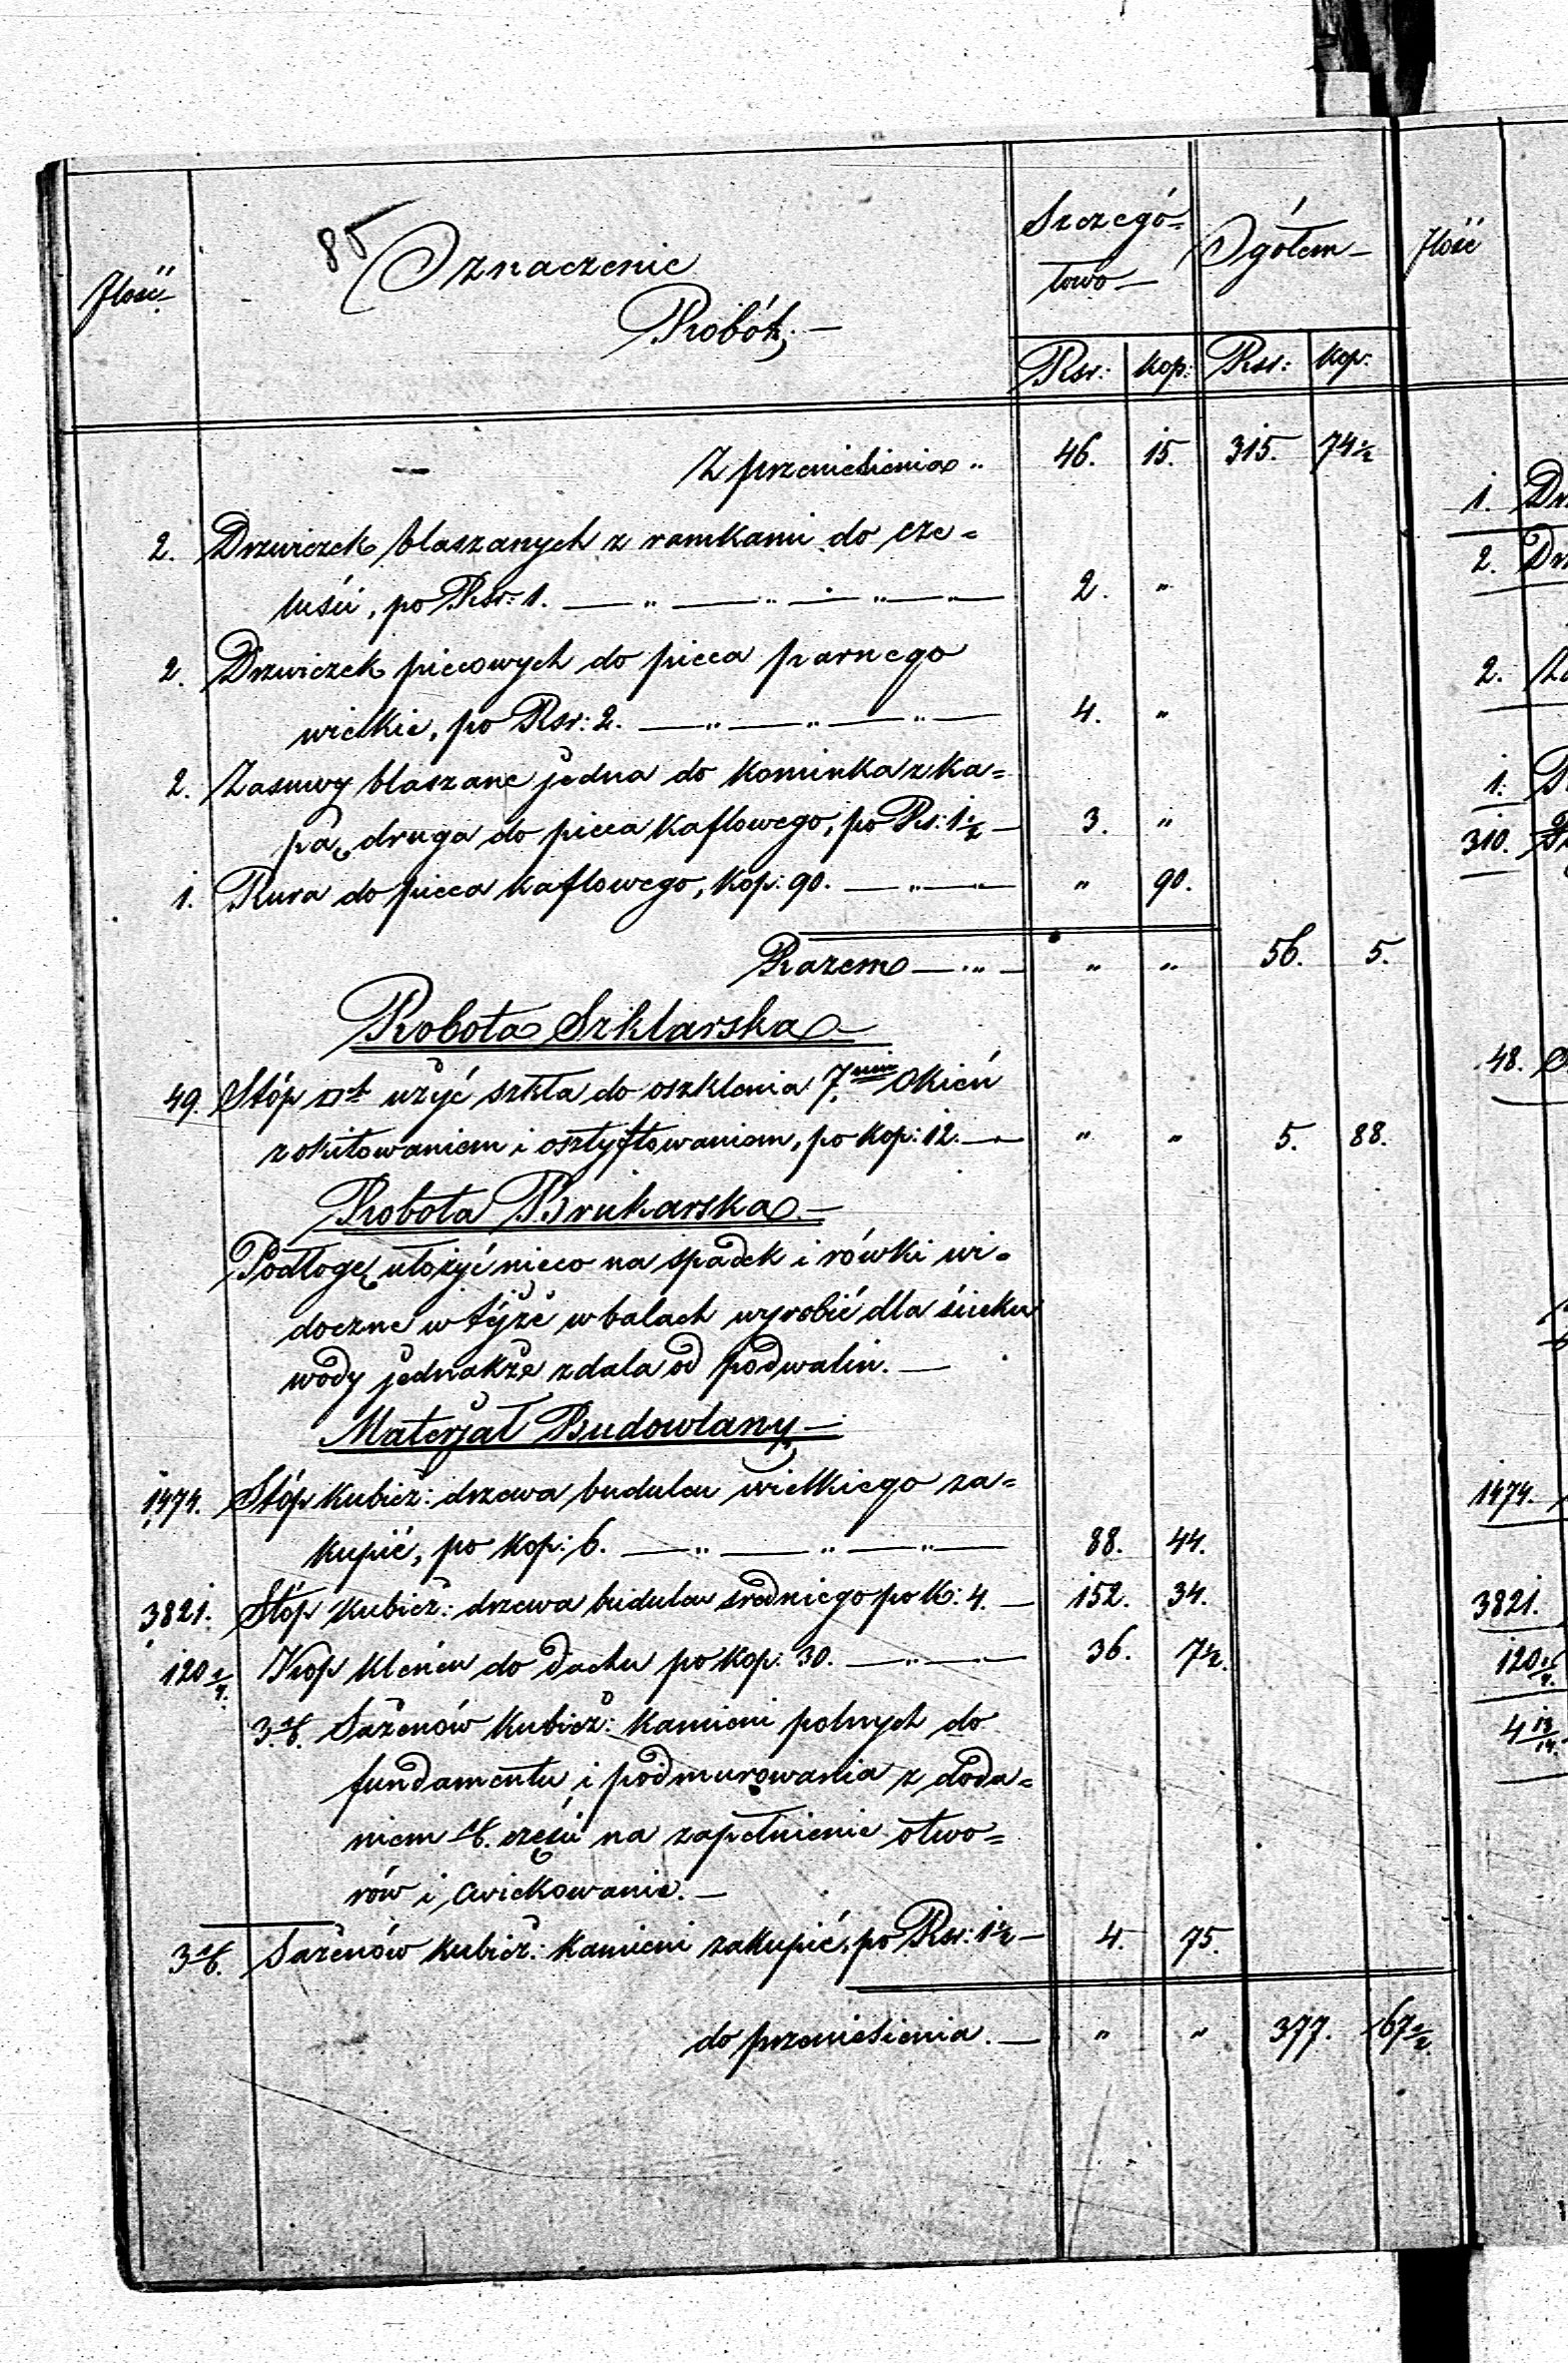 85
Ilość Oznaczenie Robót; — Szczegó- Ogółem — Ilość
łowo —
Rsr: kop: Rsr: kop:
Z przeniesienia „ 46. 15. 315. 74½
2. Drzwiczek blaszanych z ramkami do cze=
luści, po Rsr: 1. — „ — „ — „ — „ — 2. „
2. Drzwiczek piecowych do pieca parnego
wielkie, po Rsr: 2. — „ — „ — „ — 4. „
2. Zasuwy blaszane jedna do kominka z ka=
pą, druga do pieca kaflowego, po Rs: 1½ — 3. „
1. Rura do pieca kaflowego, kop: 90. — „ — „ 90.
Razem — „ — „ „ 56. 5.
Robota Szklarska —
49. Stóp □t użyć szkła do oszklenia 7.miu Okień
z okitowaniem i osztyftowaniem, po kop: 12. — „ „ 5. 88.
Robota Brukarska. —
Podłogę ułożyć nieco na spadek i rówki wi=
doczne w tejże w balach wyrobić dla ścieku
wody jednakże zdala od podwalin. —
Materjał Budowlany —
1474. Stóp kubicz: drzewa budulcu wielkiego za=
kupić, po kop: 6. — „ — „ — „ — 88. 44.
3821. Stóp kubicz: drzewa budulcu średniego po k: 4. — 152. 34.
120 1/4. Kop kleńcu do dachu po kop: 30. — „ — 36. 7½.
3 1/6. Sażenów kubicz: kamieni polnych do
fundamentu i podmurowania z doda=
niem 1/6. części na zapełnienie otwo=
rów i ćwiekowanie. —
3 1/6. Sażenów kubicz: kamieni zakupić, po Rsr: 1½ — 4. 75.
do przeniesienia. — „ „ 377. 67½.
1.
2.
2.
1.
310.
48.
1474.
3821.
120 1/4.